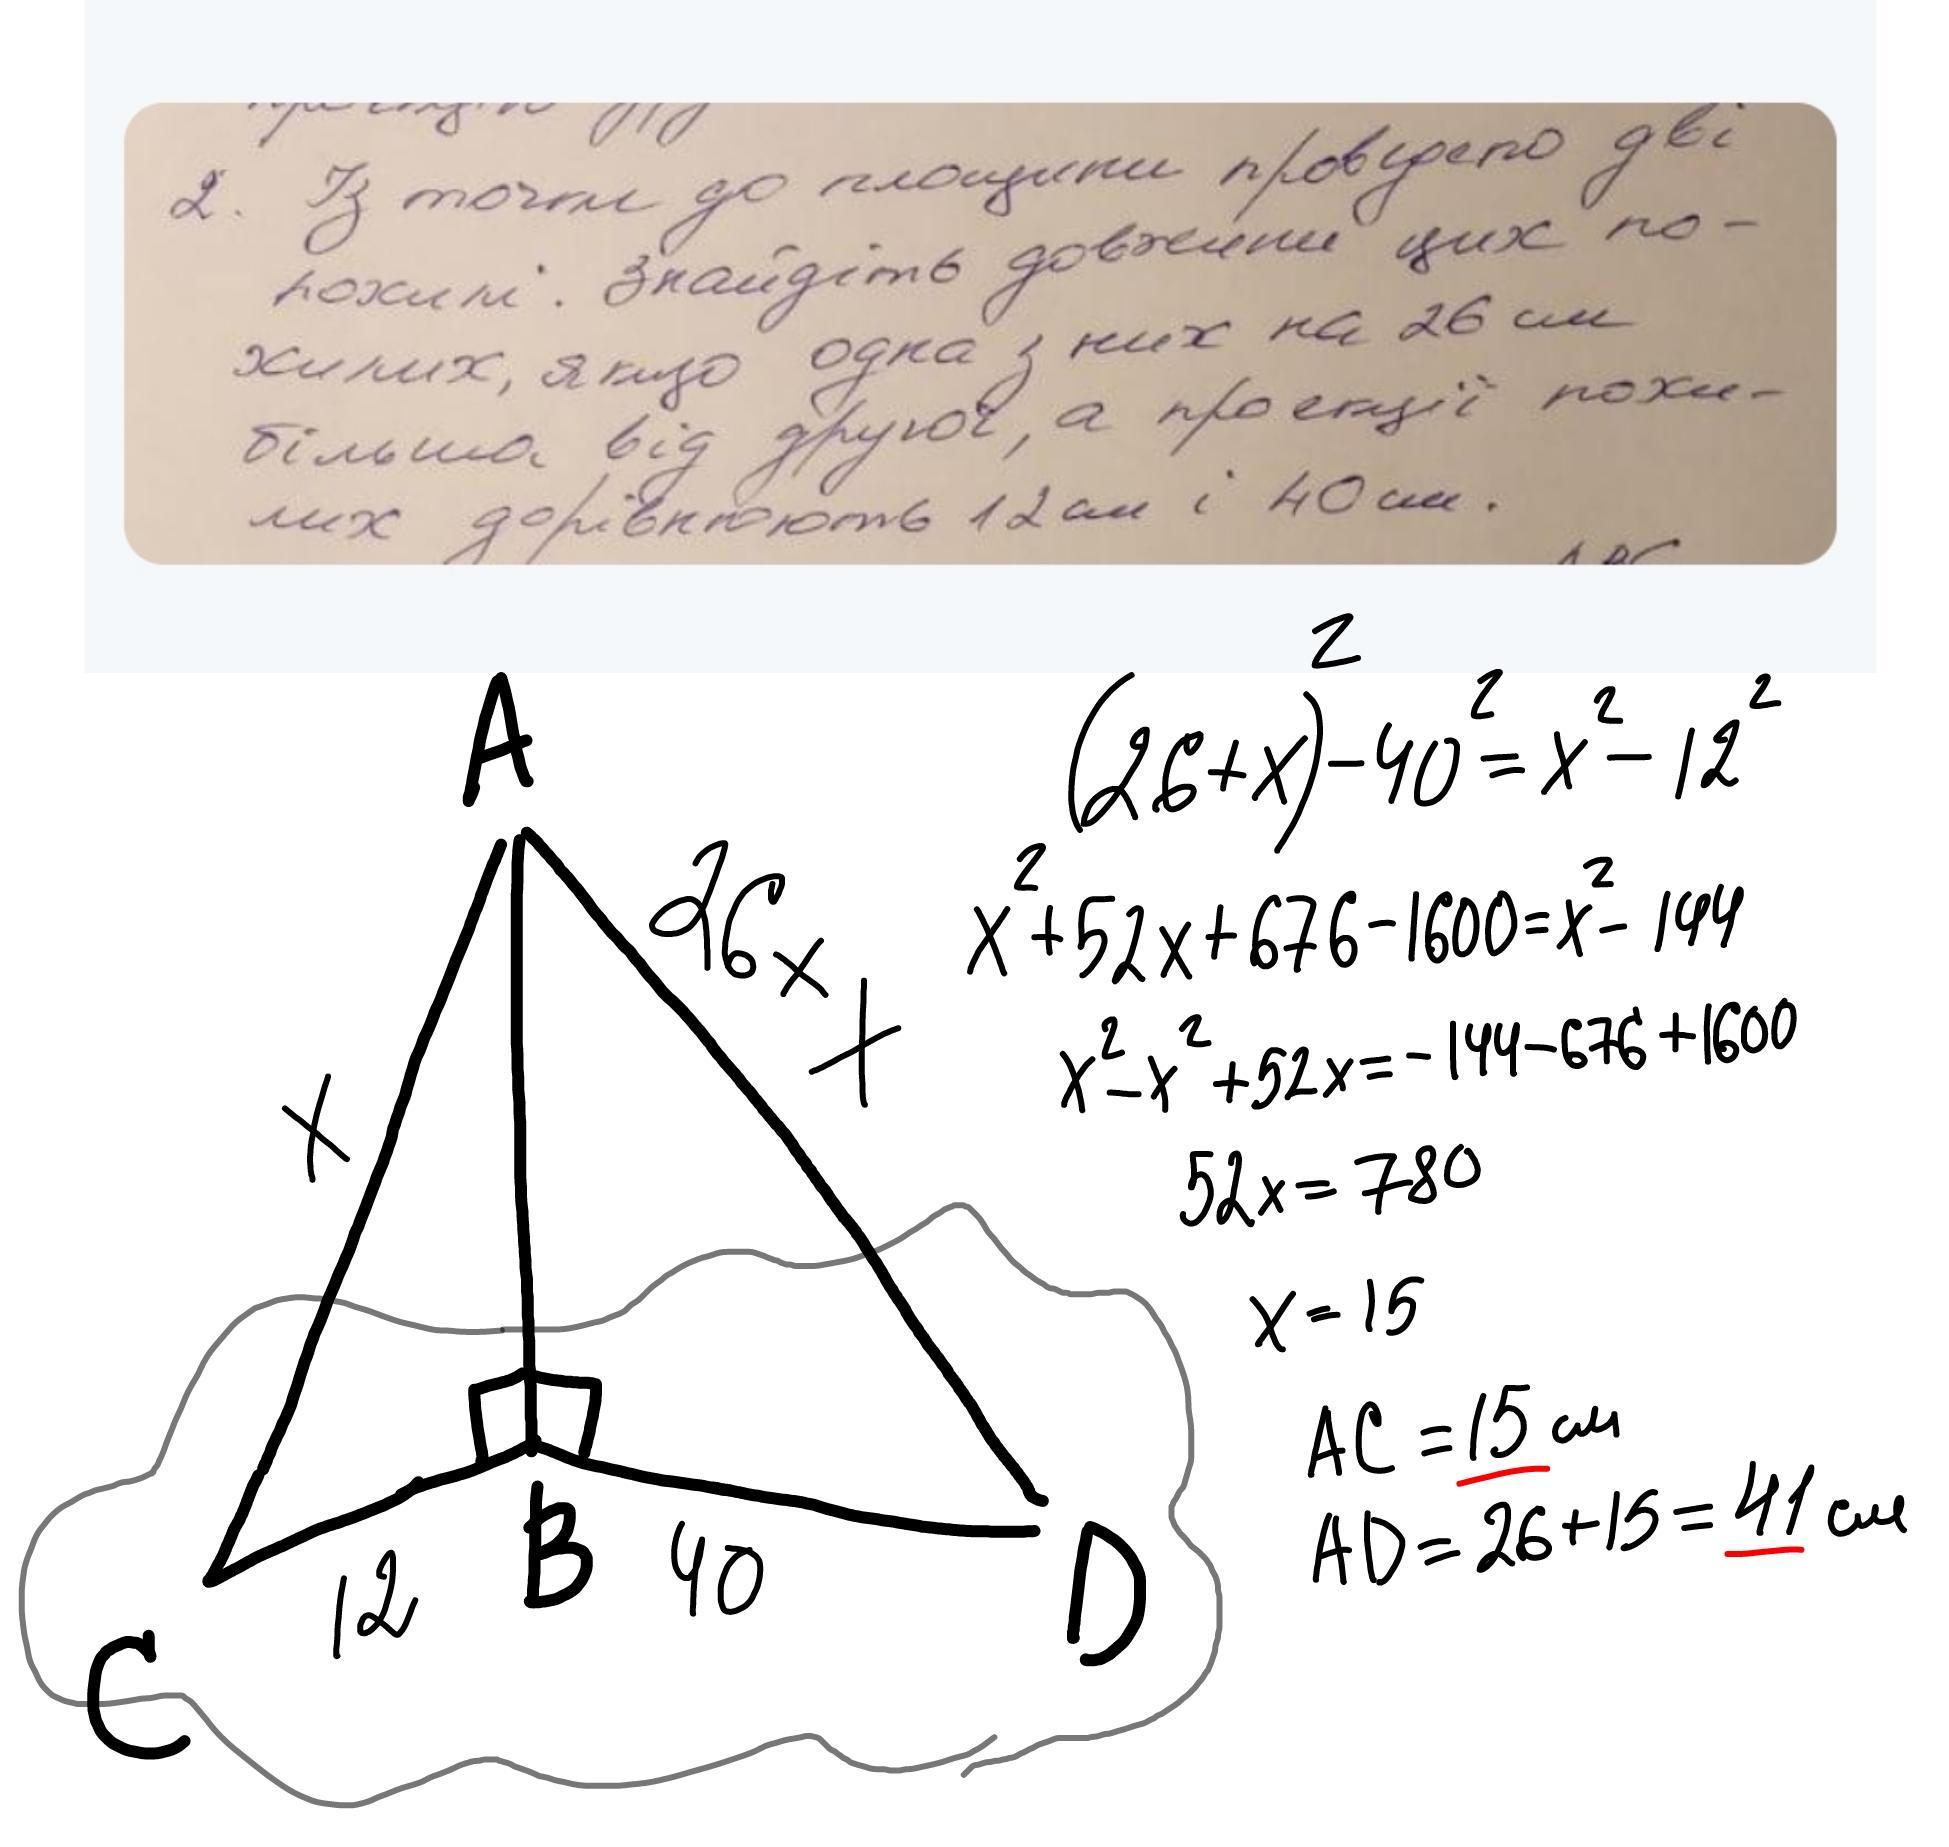 2. Із точки до площини проведено дві
похилі. Знайдіть довжини цих по-
хилих, якщо одна з них на 26 см
більша від другої, а проекції похи-
лих дорівнюють 12 см і 40 см.
A
26x
+
x
B
12
40
C
D
(26+x)²-40²=x²-12²
x²+52x+676-1600=x²-144
x²-x²+52x=-144-676+1600
52x=780
x=15
AC=15 см
AD=26+15=41 см